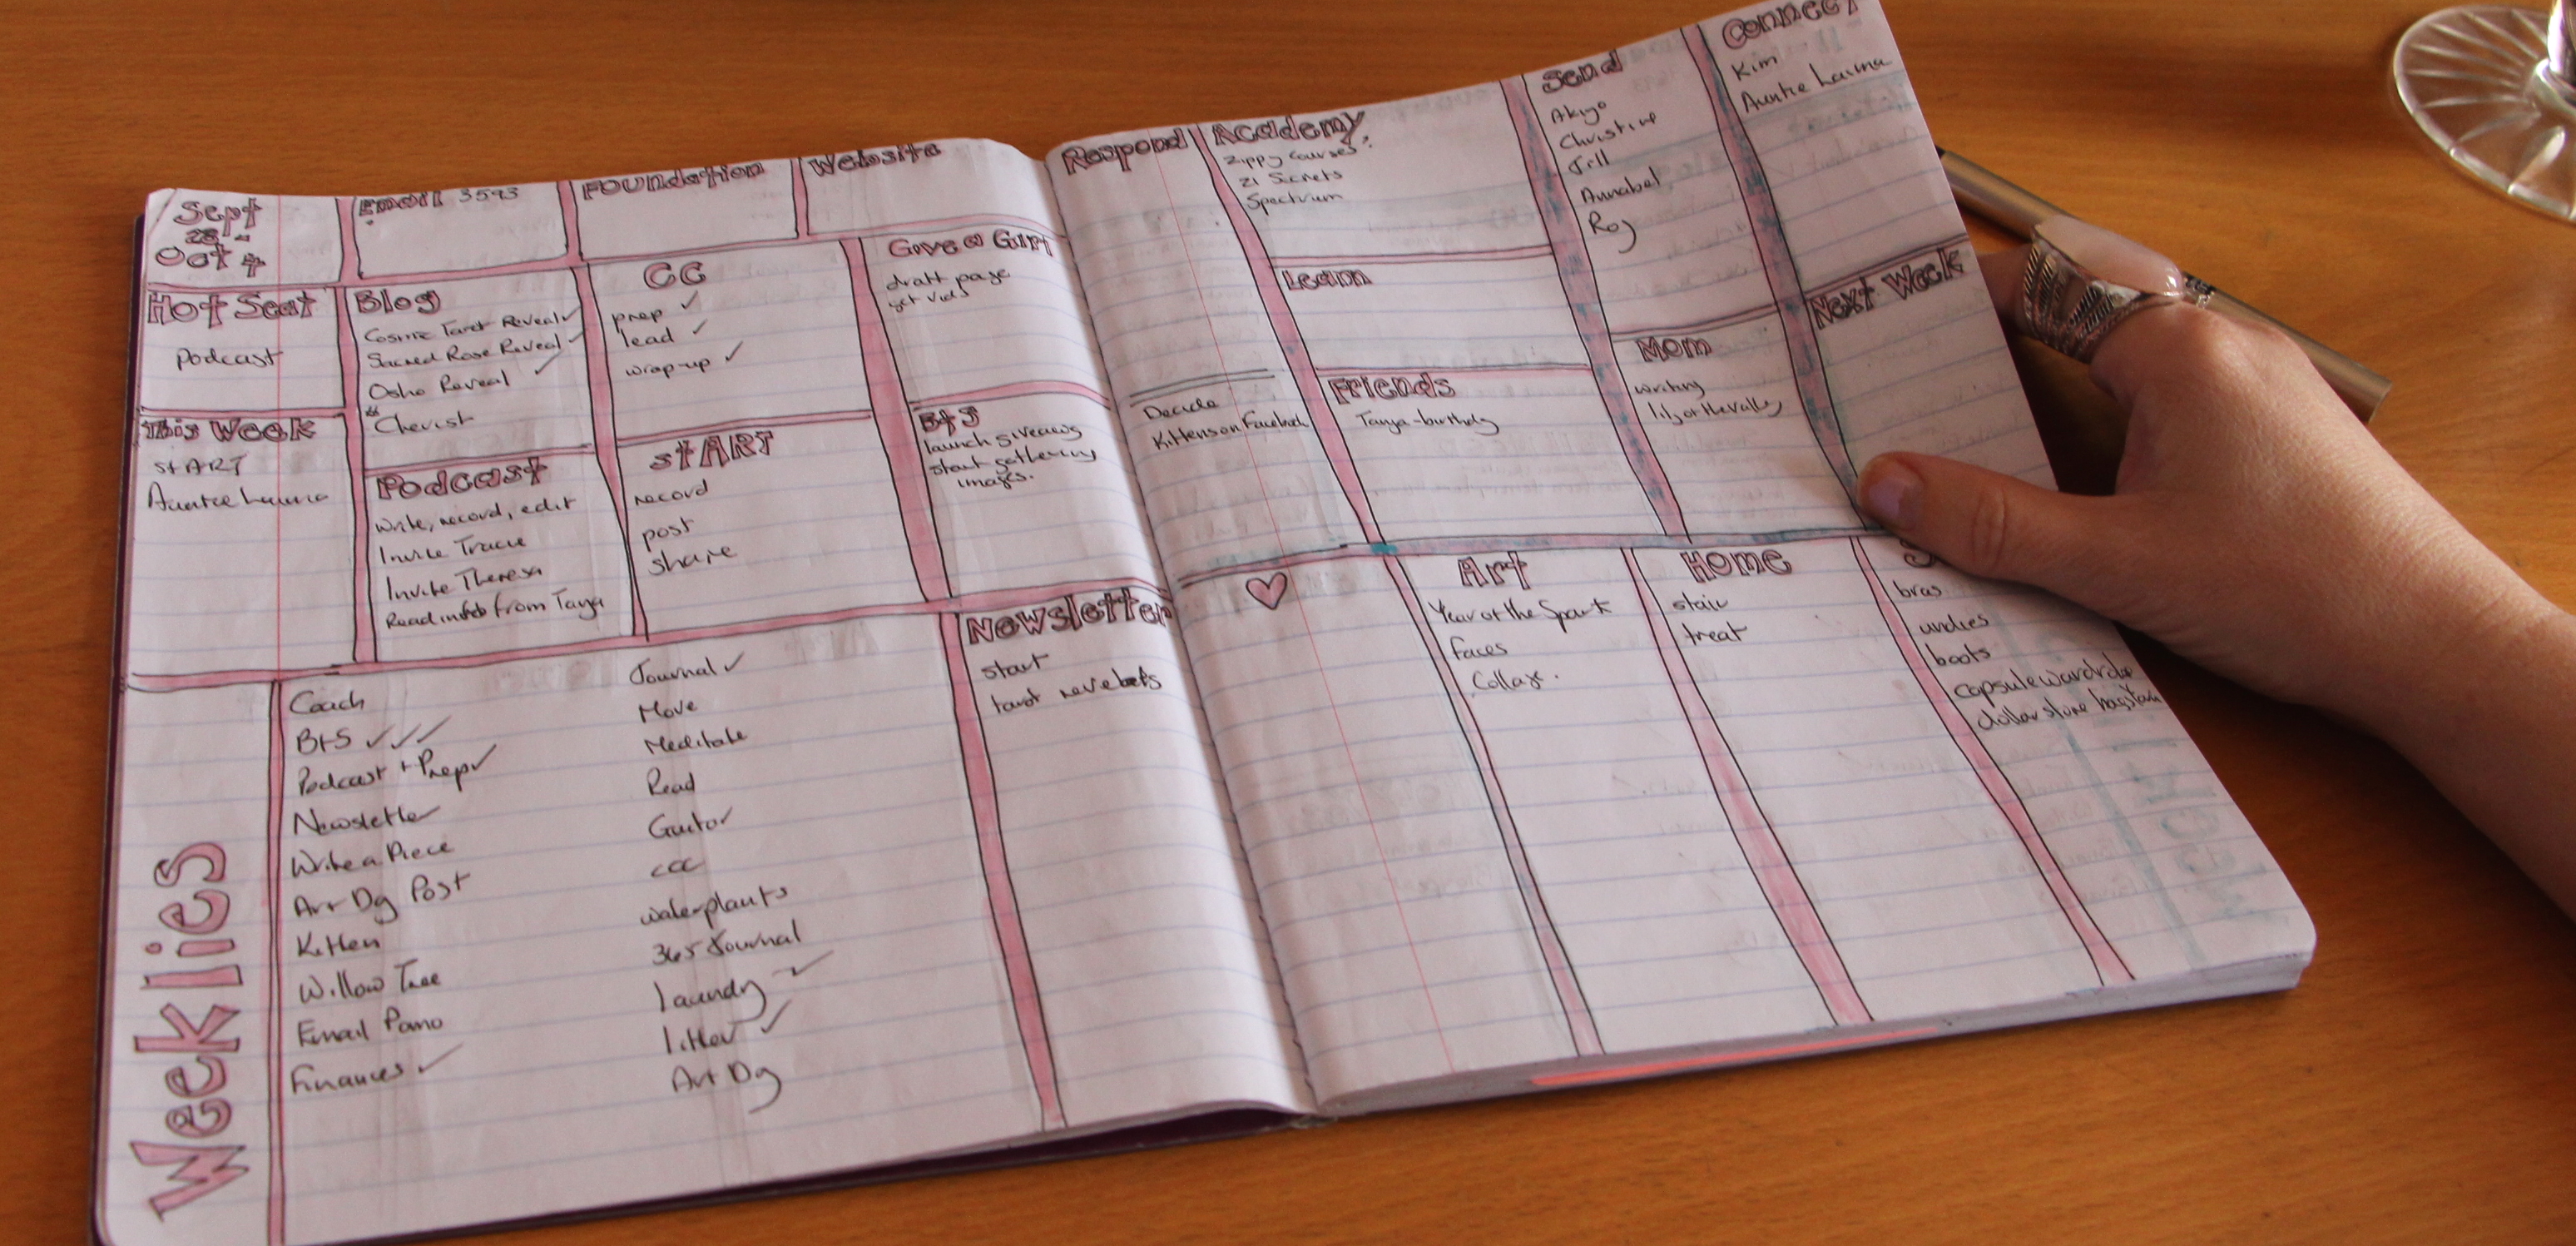 Sept
28 -
Oct 4
Email 3593
Foundation
Website
Hot Seat
Podcast
This Week
stART
Auntie Laima
Blog
Cosmic Tarot Reveal ✓
Sacred Rose Reveal ✓
Osho Reveal ✓
Cherist
Podcast
Write, record, edit
Invite Tracie
Invite Theresa
Read from Tanya
CC
prep ✓
lead ✓
wrap-up ✓
stART
record
post
share
Give a Gurl
draft page
get vids
BtS
launch giveaway
start gathering
images.
Weeklies
Coach
BtS ✓✓✓
Podcast + Prep ✓
Newsletter
Write a Piece
Art Dg Post
Kitten
Willow Tree
Email Pamo
Finances ✓
Journal ✓
Move
Meditate
Read
Guitar
CCC
water plants
365 Journal
laundry ✓
litter ✓
Art Dg
Newsletter
start
tarot
Respond
Decide
Kittens on Facebook
Academy
Zippy Courses?
21 Secrets
Spectrum
Learn
Friends
Tanya - birthday
Send
Akiyo
Christine
Jill
Annabel
Roy
Mom
writing
lily of the valley
Connect
Kim
Auntie Laima
Next Week
♡
Art
Year of the Spark
faces
Collage.
Home
stair
treat
S
bras
undies
boots
capsule wardrobe
dollar store